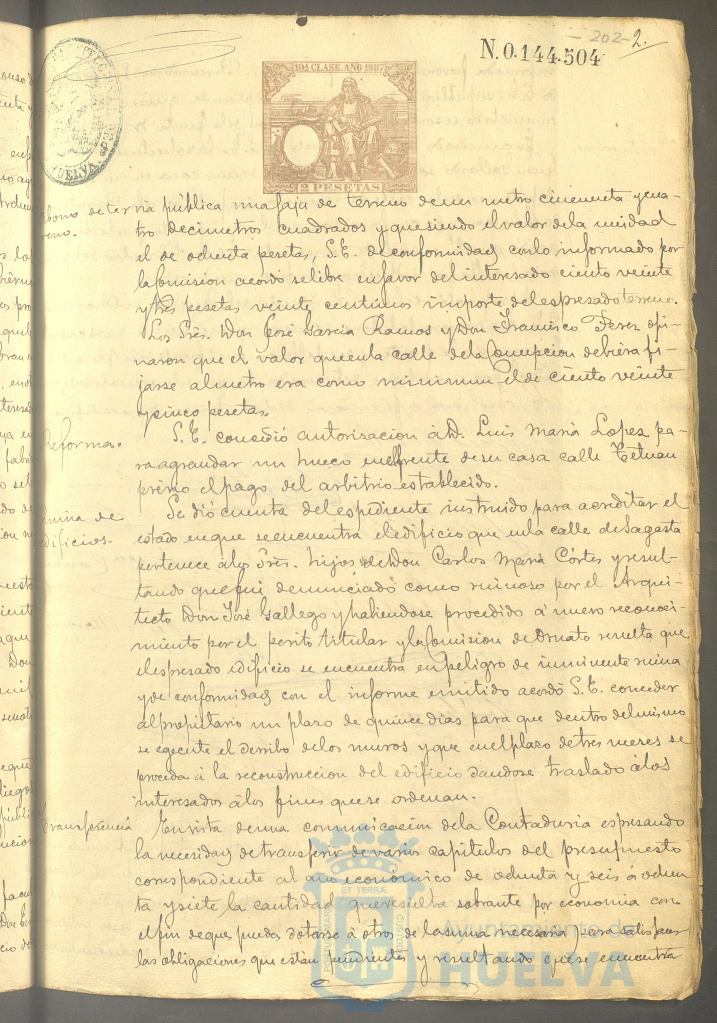 - 202 - 2.
N.0.144.504
10ª CLASE. AÑO 1887
2 PESETAS
HUELVA
abono de ter
reno.
via pública una faja de terreno de un metro cincuenta y cua-
tro decimetros cuadrados y que siendo el valor dela unidad
el de ochenta pesetas, S.E. de conformidad con lo informado por
la Comision acordó se libre en favor del interesado ciento veinte
y tres pesetas veinte centimos importe del espresado terreno.
Los Sres. Don José Garcia Ramos y Don Francisco Perez opi-
naron que el valor que en la calle de la Concepcion debiera fi-
jarse al metro era como minimum el de ciento veinte
y cinco pesetas.
Reforma.
S.E. concedió autorizacion á D. Luis Maria Lopez pa-
ra agrandar un hueco en el frente de su casa calle Tetuan
prévio el pago del arbitrio establecido.
Ruina de
edificios.
Se dió cuenta del espediente instruido para acreditar el
estado en que se encuentra el edificio que en la calle de Sagasta
pertenece á los Sres. hijos de Don Carlos Maria Córtes y resul-
tando que fué denunciado como ruinoso por el Arqui-
tecto Don José Gallego y habiendose procedido á nuevo reconoci-
miento por el perito titular y la Comision de Ornato resulta que
el espresado edificio se encuentra en peligro de inminente ruina
y de conformidad con el informe emitido acordó S.E. conceder
al propietario un plazo de quince dias para que dentro del mismo
se egecute el derribo de los muros y que en el plazo de tres meses se
proceda á la reconstruccion del edificio dandose traslado á los
interesados á los fines que se ordenan.
Transferencia
En vista de una comunicacion de la Contaduria espresando
la necesidad de transferir de varios capitulos del presupuesto
correspondiente al año económico de ochenta y seis á ochen-
ta y siete la cantidad que resulta sobrante por economia con
el fin de que pueda dotarse á otros de la suma necesaria para satisfacer
las obligaciones que estan pendientes y resultando que se encuentra
PORTUS MARIS ET TERRÆ CUSTODIA
Ayuntamiento de
HUELVA